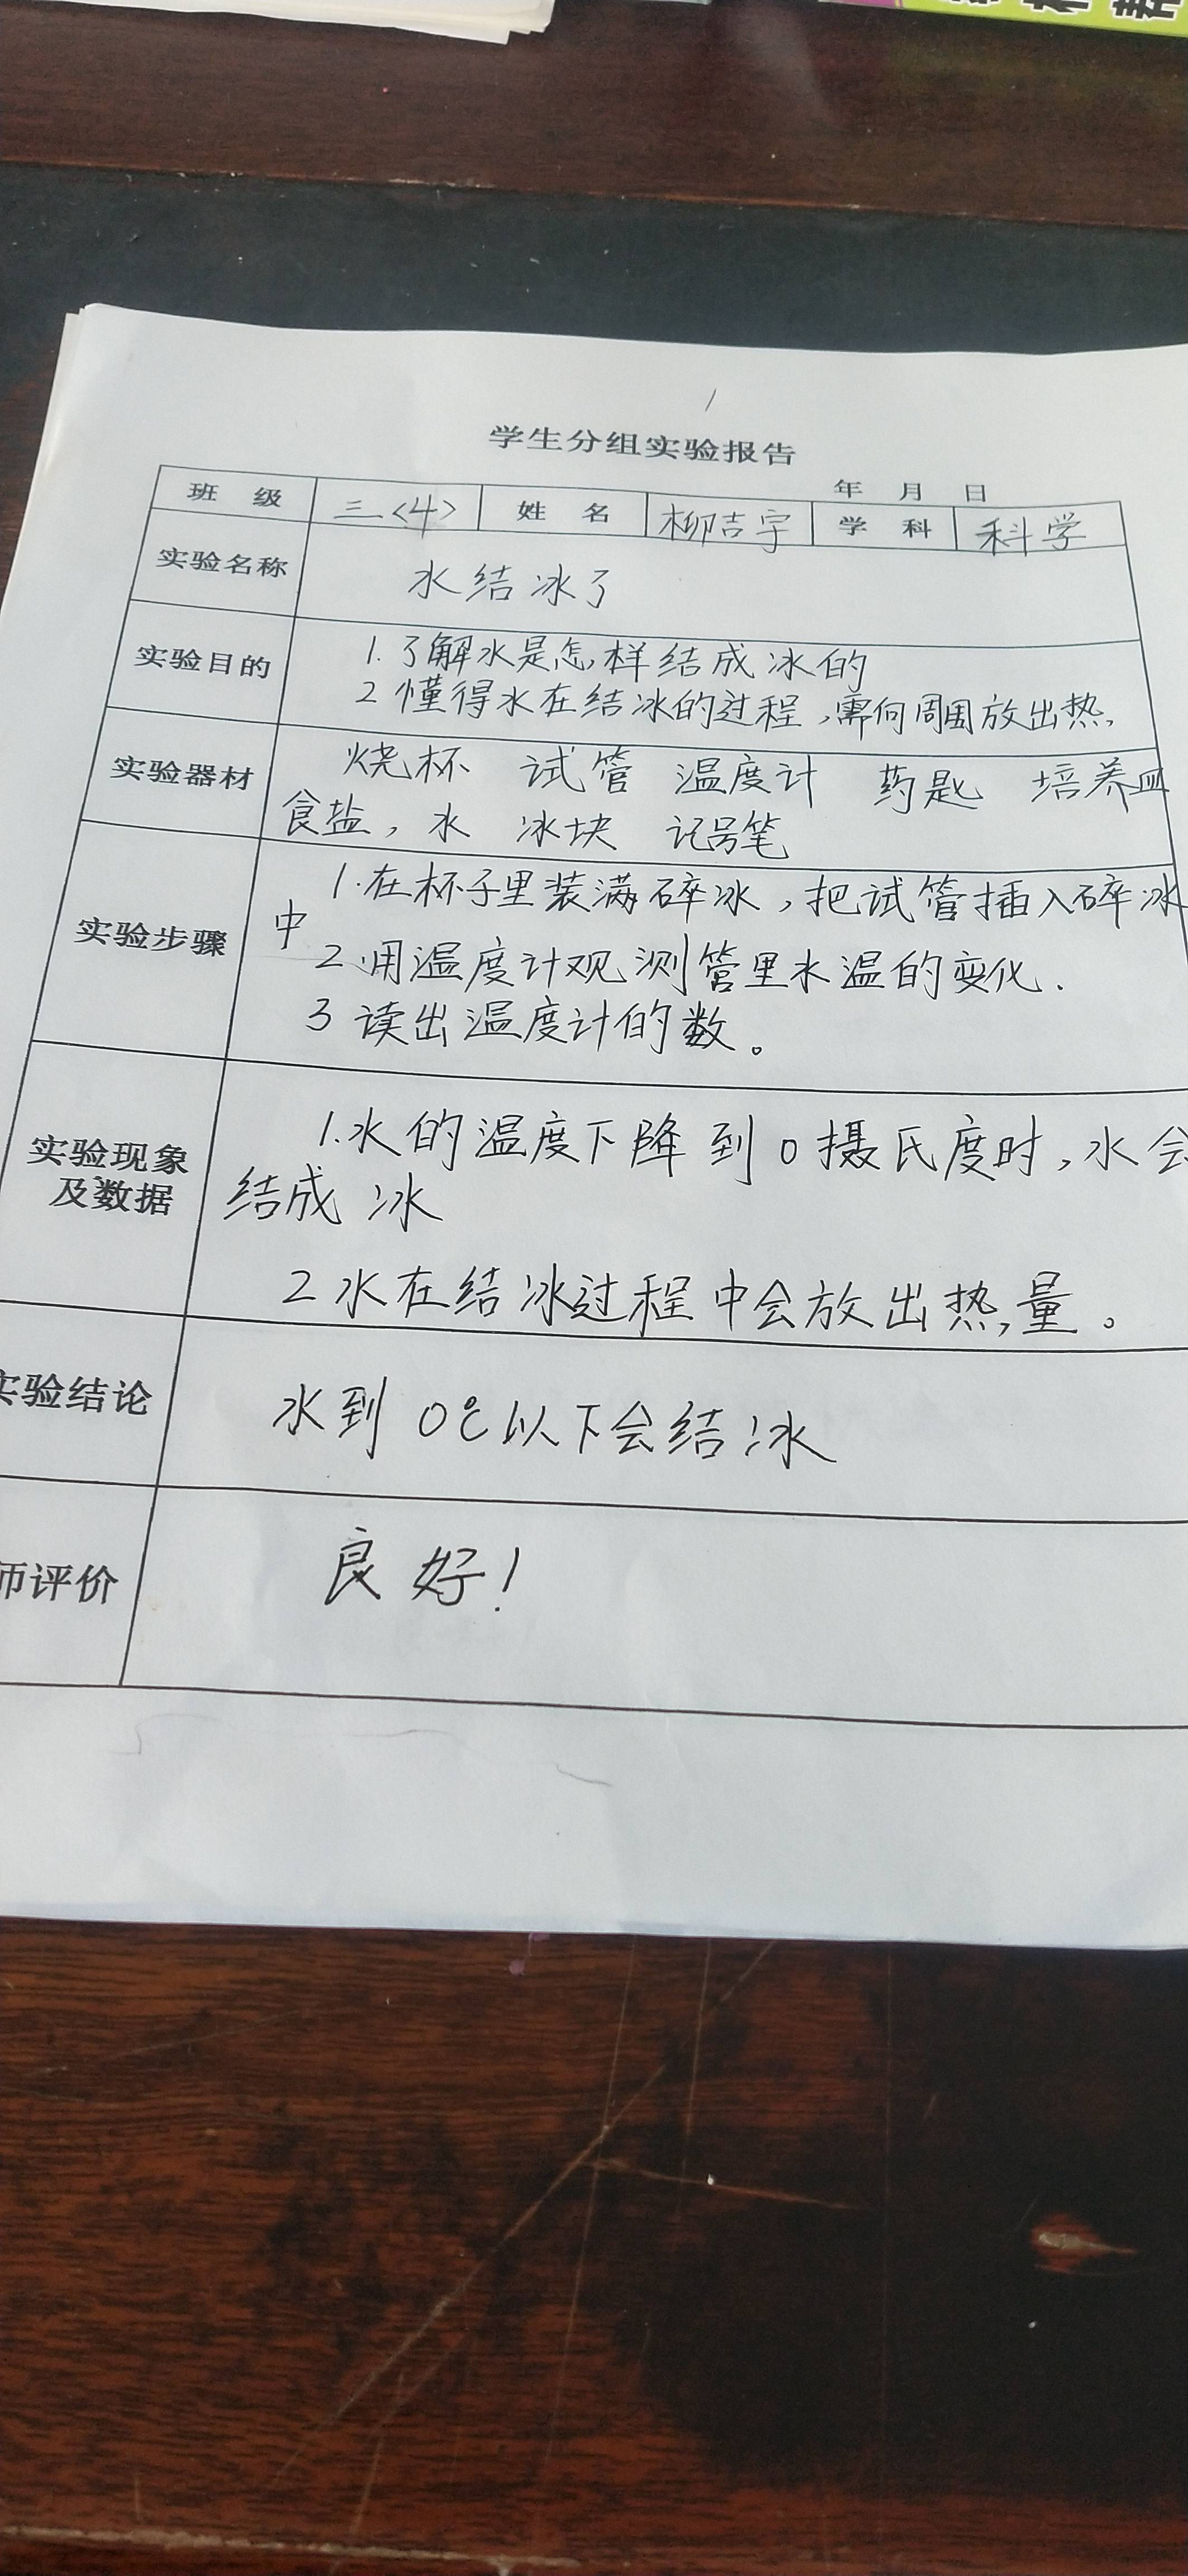 学生分组实验报告
年 月 日
班 级 三<4> 姓 名 柳吉宇 学 科 科学
实验名称 水结冰了
实验目的 1.了解水是怎样结成冰的
2 懂得水在结冰的过程,需向周围放出热,
实验器材 烧杯 试管 温度计 药匙 培养皿
食盐,水 冰块 记号笔
实验步骤 1.在杯子里装满碎冰,把试管插入碎冰
中
2.用温度计观测管里水温的变化.
3 读出温度计的数。
实验现象
及数据 1.水的温度下降到0摄氏度时,水会
结成冰
2 水在结冰过程中会放出热量。
实验结论 水到0℃以下会结冰
师评价 良好!